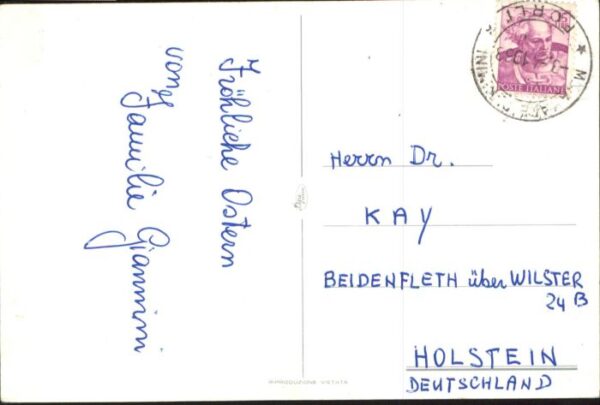 Fröhliche Ostern
von
Familie Giannini
POSTE ITALIANE
FORLI
Herrn Dr.
KAY
BEIDENFLETH über WILSTER
24 B
HOLSTEIN
DEUTSCHLAND
RIPRODUZIONE VIETATA